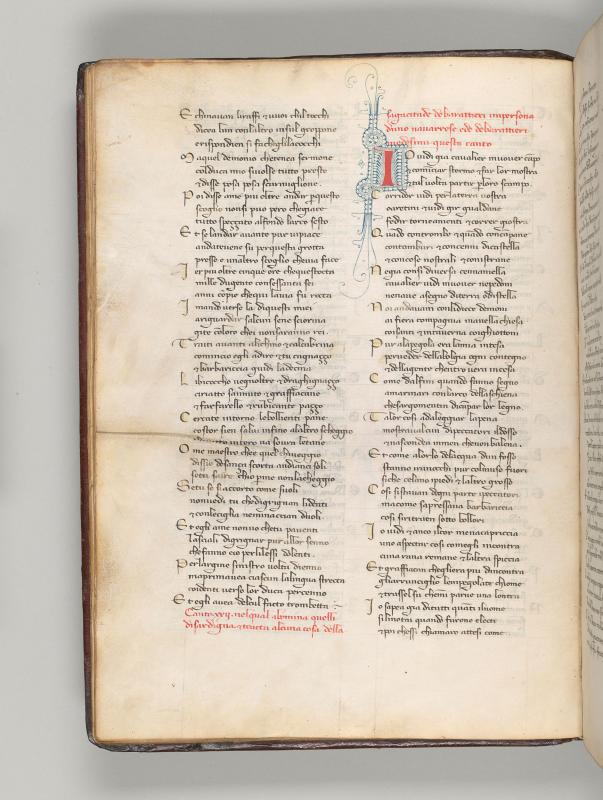 E chinavan liraffi ⁊ vuoi chil tocchi
dicea lun conlaltro insul groppone
erispondien si fachegliacocchi
M aquel demonio chetenea sermone
colduca mio sivolse tutto presto
⁊ disse posa posi scarmiglione
P oi disse ame piu oltre andar pquesto
scoglio nonsi puo pero chegiace
tutto speççato alfondo larco sesto
E t se landar avante pur vipiace
andatevene su perquesta grotta
presso e unaltro scoglio chevia face
I er piu oltre cinque ore chequestotta
mille dugento consessanta sei
anni compie chequi lavia fu rotta
I mando verso la diquesti miei
ariguardar salcun sene sciorina
gite coloro chei nonsaranno rei
T rati avanti alichino ⁊ calcabrina
comincio egli adire ⁊ tu cagnaçço
⁊ barbariccia guidi ladecina
L ibicoccho vegnoltre ⁊ draghignaçço
ciriatto sannuto ⁊ graffiacane
⁊ farfarello ⁊ rubicante paçço
C ercate intorno lebollenti pane
costor sien salvi infino alaltro scheggio
tutto intero va sovra letane
O me maestro chee quel chiveggio
dissio deh sança scorta andianci soli
setu sa ire chio pme nonlachieggio
S etu se si accorto come suoli
nonvedi tu chedigrignan lidenti
⁊ conleciglia neminaccian duoli
E t egli ame nonvo chetu paventi
lasciali digrignar pur allor senno
chefanno cio perlilessi dolenti
P er largine sinistro volta dienno
maprimavea ciascun lalingua stretta
coidenti verso lor duca percenno
E t egli avea delcul fatto trombetta
Canto xxij. nelqual abomina quelli
disardigna ⁊ tratta alcuna cosa della
sagacitade debarattieri impersona
duno navarrese ede debarattieri
medesimi questo canto
I O vidi gia cavalier muover campo
⁊ cominciar stormo ⁊ far lor mostra
⁊ tal volta partir ploro scampo
C orridor vidi perlaterra vostra
oaretini ⁊ vidi gir gualdane
fedir torneamenti ⁊ correr giostra
Q uando contrombe ⁊ quando concampane
contamburi ⁊ concenni dicastella
⁊ concose nostrali ⁊ conistrane
N egia consi diversa cennamella
cavalier vidi muover nepedoni
nenave asegno diterra odistella
N oi andavam conlidiece demoni
ai fiera compagnia manella chiesa
coisanti ⁊ intaverna coighiottoni
P ur alapegola era lamia intesa
perveder dellabolgia ogni contegno
⁊ dellagente chentro vera incesa
C ome dalfini quando fanno segno
amarinari conlarco dellaschiena
chesargomentin dicanpar lor legno
T alor cosi adalegiar lapena
mostravalcun dipeccatori ildosso
⁊ nascondea inmen chenon balena
E t come alorlo delacqua dun fosso
stanno iranocchi pur colmuso fuori
siche celano ipiedi ⁊ laltro grosso
C osi sistavan dogni parte ipeccatori
macome sapressava barbariccia
cosi siritraen sotto ibollori
I o vidi ⁊ anco ilcor menacapriccia
uno aspettar cosi comegli incontra
cuna rana rimane ⁊ laltra spiccia
E t graffiacan chegliera piu dincontra
gliarronciglio lempegolate chiome
⁊ trassel su chemi parve una lontra
I o sapea gia ditutti quanti ilnome
silinotai quando furono eletti
⁊ poi chessi chiamaro attesi come